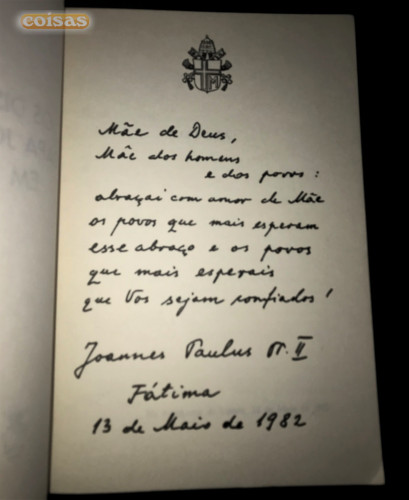 coisas
Mãe de Deus,
Mãe dos homens
e dos povos:
abraçai com amor de Mãe
os povos que mais esperam
esse abraço e os povos
que mais esperais
que Vos sejam confiados!
Joannes Paulus PP. II
Fátima
13 de Maio de 1982